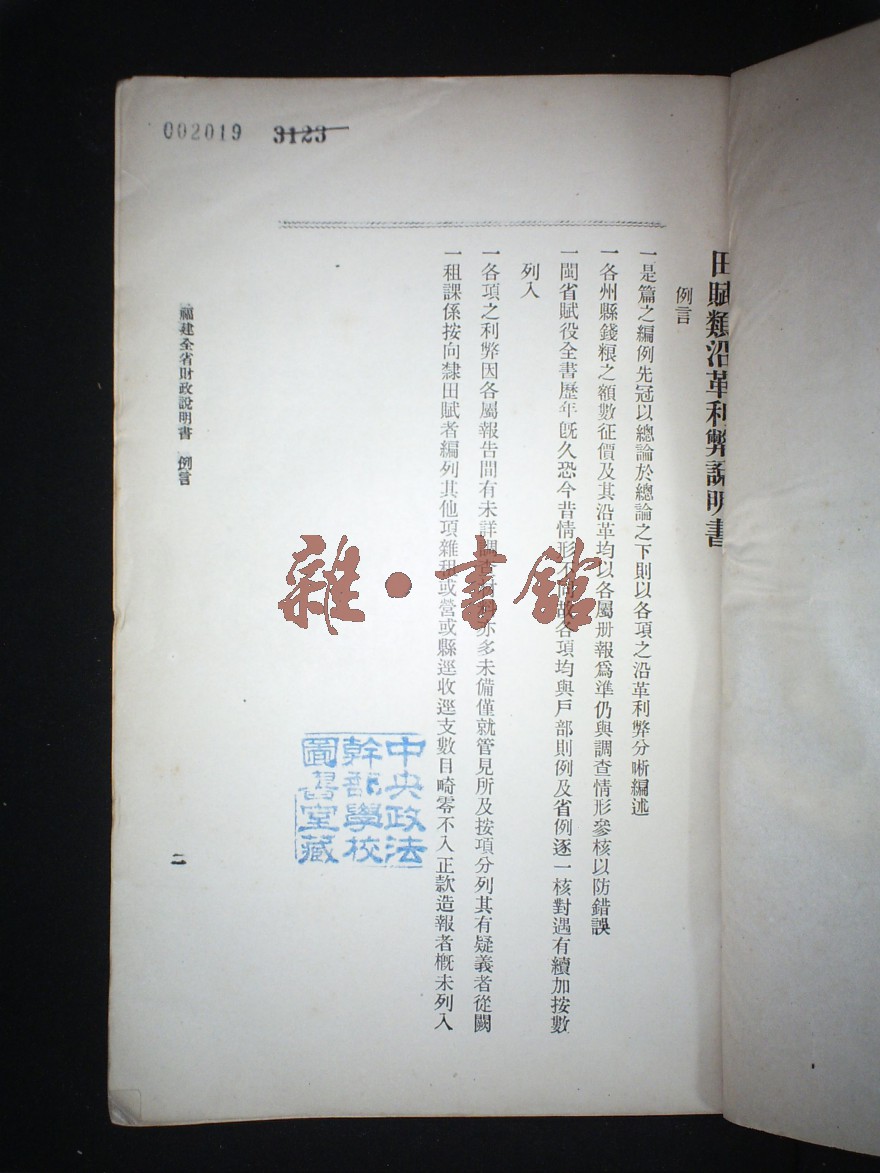 002019 3123
田賦類沿革利弊說明書
例言
一是篇之編例先冠以總論於總論之下則以各項之沿革利弊分晰編述
一各州縣錢粮之額數征價及其沿革均以各屬册報爲準仍與調查情形參核以防錯誤
一閩省賦役全書歷年旣久恐今昔情形不同故各項均與戶部則例及省例逐一核對遇有續加按數
列入
一各項之利弊因各屬報告間有未詳調查亦多未備僅就管見所及按項分列其有疑義者從闕
一租課係按向隸田賦者編列其他項雜租或營或縣逕收逕支數目畸零不入正款造報者槪未列入
福建全省財政說明書 例言
二
雜·書館
中央政法
幹部學校
圖書室藏